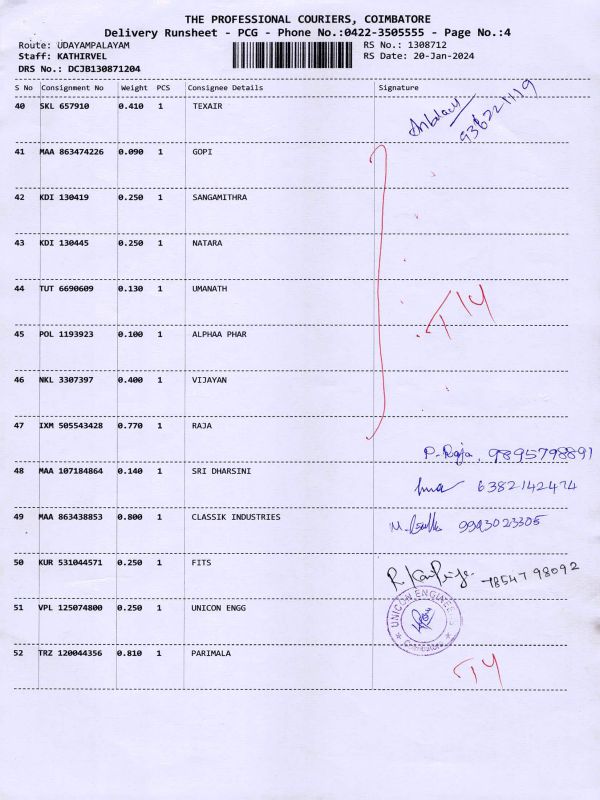 THE PROFESSIONAL COURIERS, COIMBATORE
Delivery Runsheet - PCG - Phone No.:0422-3505555 - Page No.:4
Route: UDAYAMPALAYAM RS No.: 1308712
Staff: KATHIRVEL RS Date: 20-Jan-2024
DRS No.: DCJB130871204
S No Consignment No Weight PCS Consignee Details Signature
40 SKL 657910 0.410 1 TEXAIR
41 MAA 863474226 0.090 1 GOPI
42 KDI 130419 0.250 1 SANGAMITHRA
43 KDI 130445 0.250 1 NATARA
44 TUT 6690609 0.130 1 UMANATH
T14
45 POL 1193923 0.100 1 ALPHAA PHAR
46 NKL 3307397 0.400 1 VIJAYAN
47 IXM 505543428 0.770 1 RAJA
P. Raja. 9895798891
48 MAA 107184864 0.140 1 SRI DHARSINI
6382142474
49 MAA 863438853 0.800 1 CLASSIK INDUSTRIES
9993023305
50 KUR 531044571 0.250 1 FITS
98092
51 VPL 125074800 0.250 1 UNICON ENGG
UNICON ENGINEERS
Coimbatore
52 TRZ 120044356 0.810 1 PARIMALA
T4